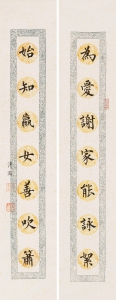 為愛謝家能詠絮
始知嬴女善吹簫